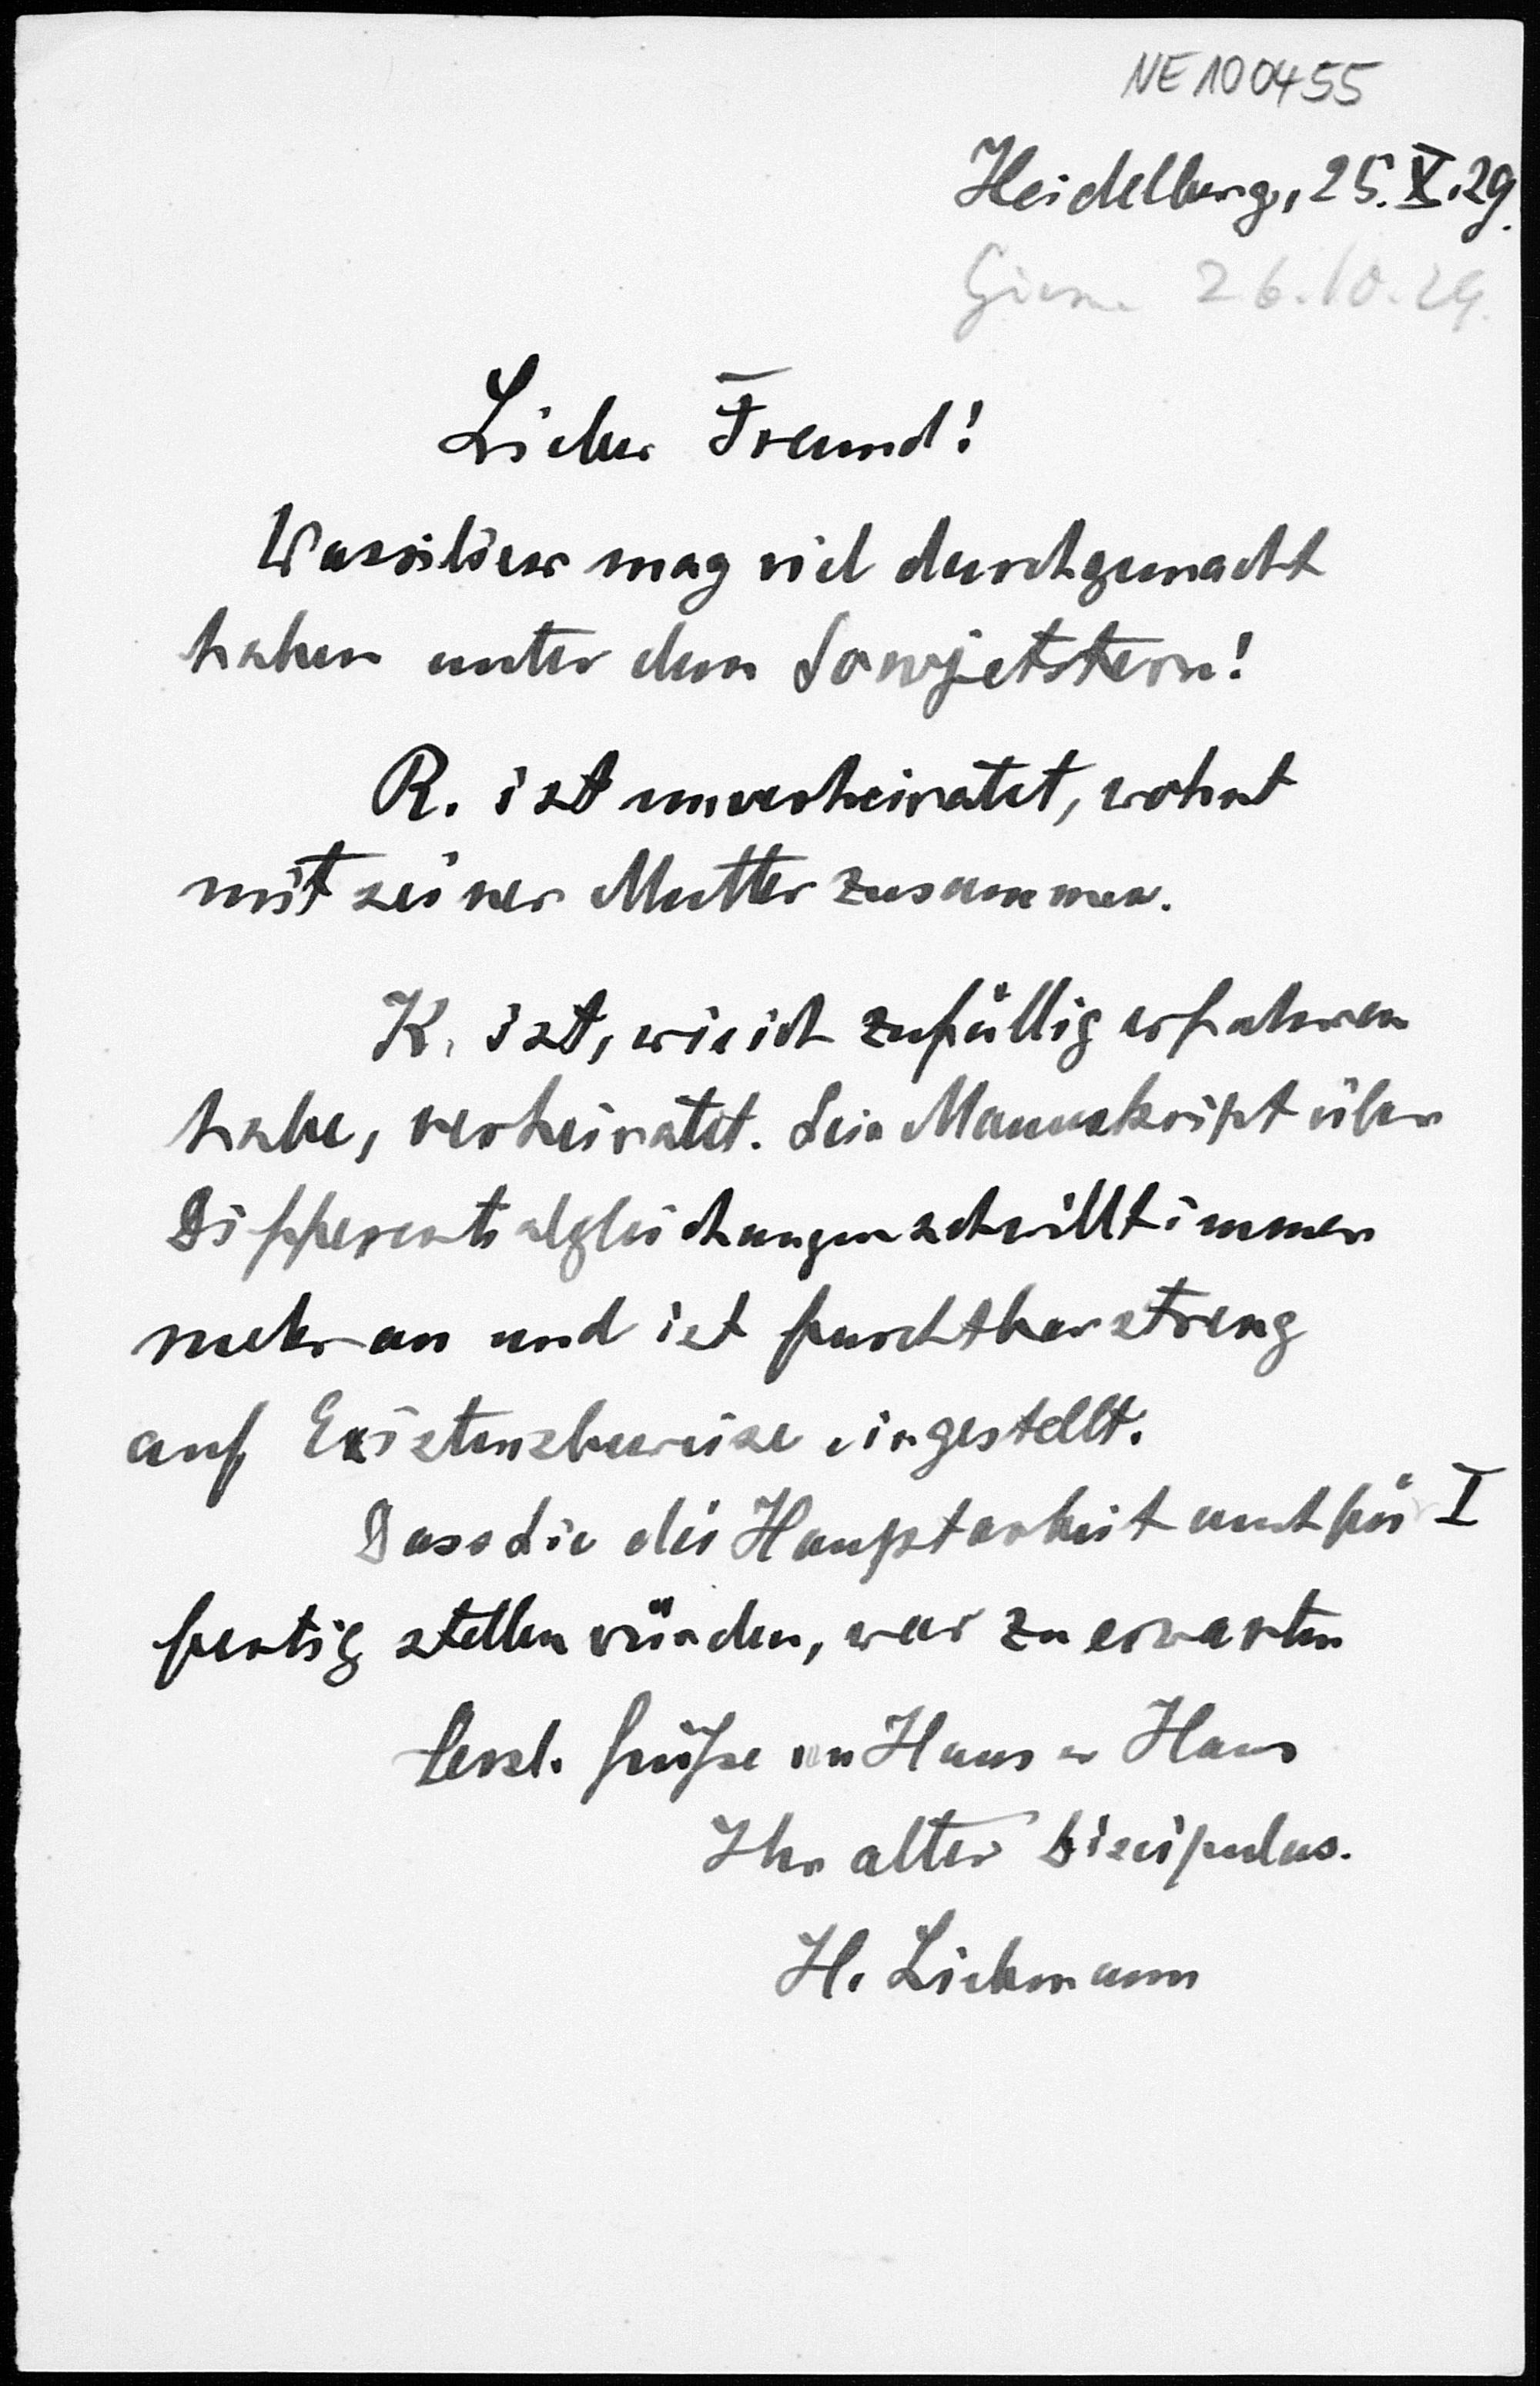 NE 100455
Heidelberg, 25.X.29.
26.10.29.
Lieber Freund!
Wassiliew mag viel durchgemacht
haben unter dem Sowjetstern!
R. ist unverheiratet, wohnt
mit seiner Mutter zusammen.
K. ist, wie ich zufällig erfahren
habe, verheiratet. Sein Manuskript über
Differentialgleichungen schwillt immer
mehr an und ist furchtbar streng
auf Existenzbeweise eingestellt.
Dass Sie die Hauptarbeit auch für I
fertig stellen würden, war zu erwarten
Herzl. Grüße von Haus zu Haus
Ihr alter Discipulus.
H. Liebmann